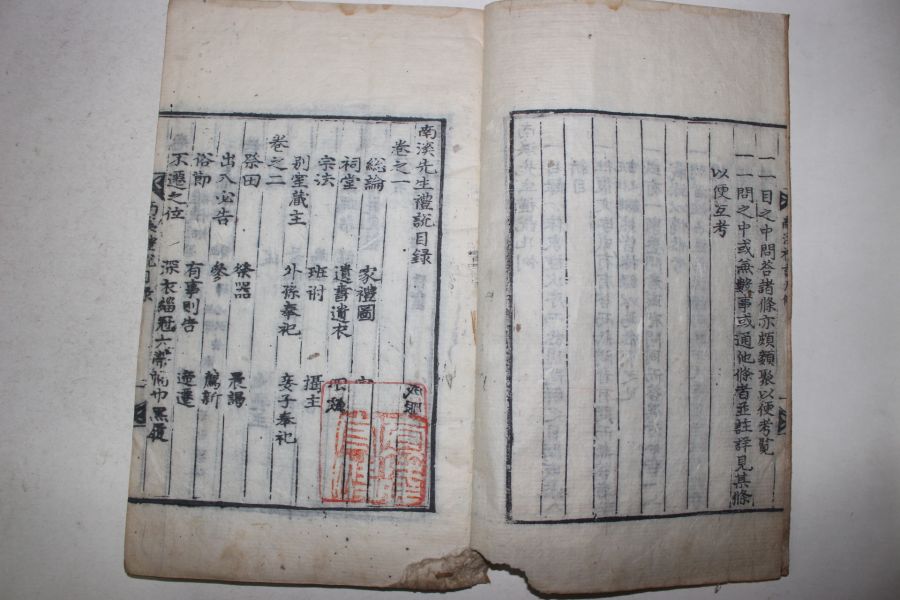 一一目之中問答諸條亦頗類聚以便考覧
一一問之中或兼數事或通他條者並註詳見某條
以便互考
南溪先生禮說目錄
卷之一
總論 家禮圖
祠堂 遺書遺衣
宗法 班祔 攝主
別室藏主 外孫奉祀 妾子奉祀
卷之二
祭田 祭器 晨謁
出入必告 參 薦新
俗節 有事則告 遞遷
不遷之位 深衣緇冠